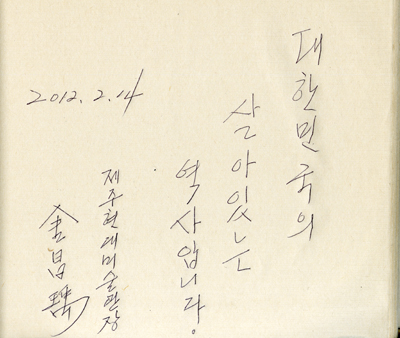 대한민국의
살아있는
역사입니다.
2012. 2. 14
제주현대미술관장
金昌